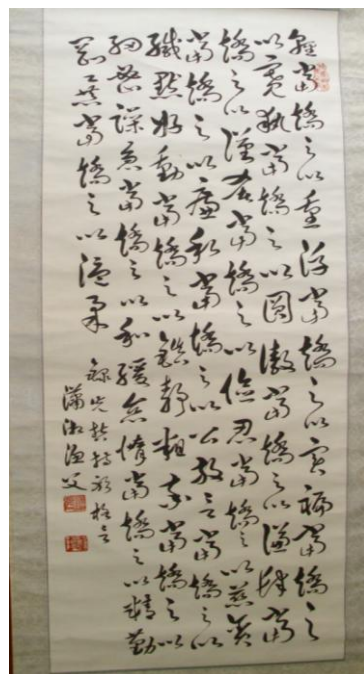 輕當矯之以重浮當矯之以實褊當矯之
以寬執當矯之以圓傲當矯之以謙肆當
矯之以謹奢當矯之以儉忍當矯之以慈貪
當矯之以廉私當矯之以公放言當矯之以
緘默好動當矯之以鎮靜粗率當矯之以
細密躁急當矯之以和緩怠惰當矯之以精勤
剛暴當矯之以溫柔
錄先哲持躬格言
瀟湘漁父